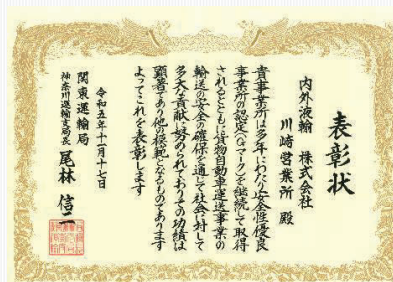 表彰状
内外液輸 株式会社
川崎営業所 殿
貴事業所は多年にわたり安全性優良
事業所の認定(Gマーク)を継続して取得
されるとともに貨物自動車運送事業の
輸送の安全の確保を通じて社会に対して
多大な貢献に努められておりその功績は
顕著であり他の模範となるものであります
よってこれを表彰します
令和五年十一月十七日
関東運輸局
神奈川運輸支局長 尾林 信二